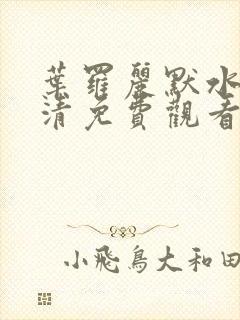 葉羅麗默水
清免費觀看
小飛鳥大和田